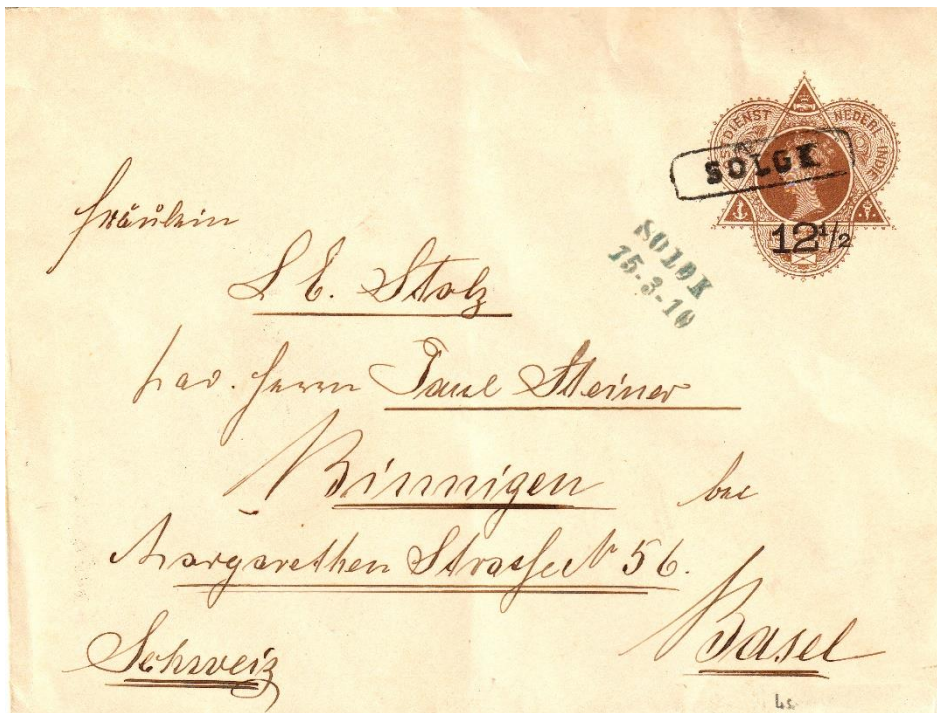 POSTDIENST NEDERL-INDIE
SOLOK
12 1/2
SOLOK
15-3-10
Fräulein
L E. Stolz
per ad. Herrn Paul Steiner
Binnigen bei
Margarethen Strasse No 56.
Schweiz
Basel